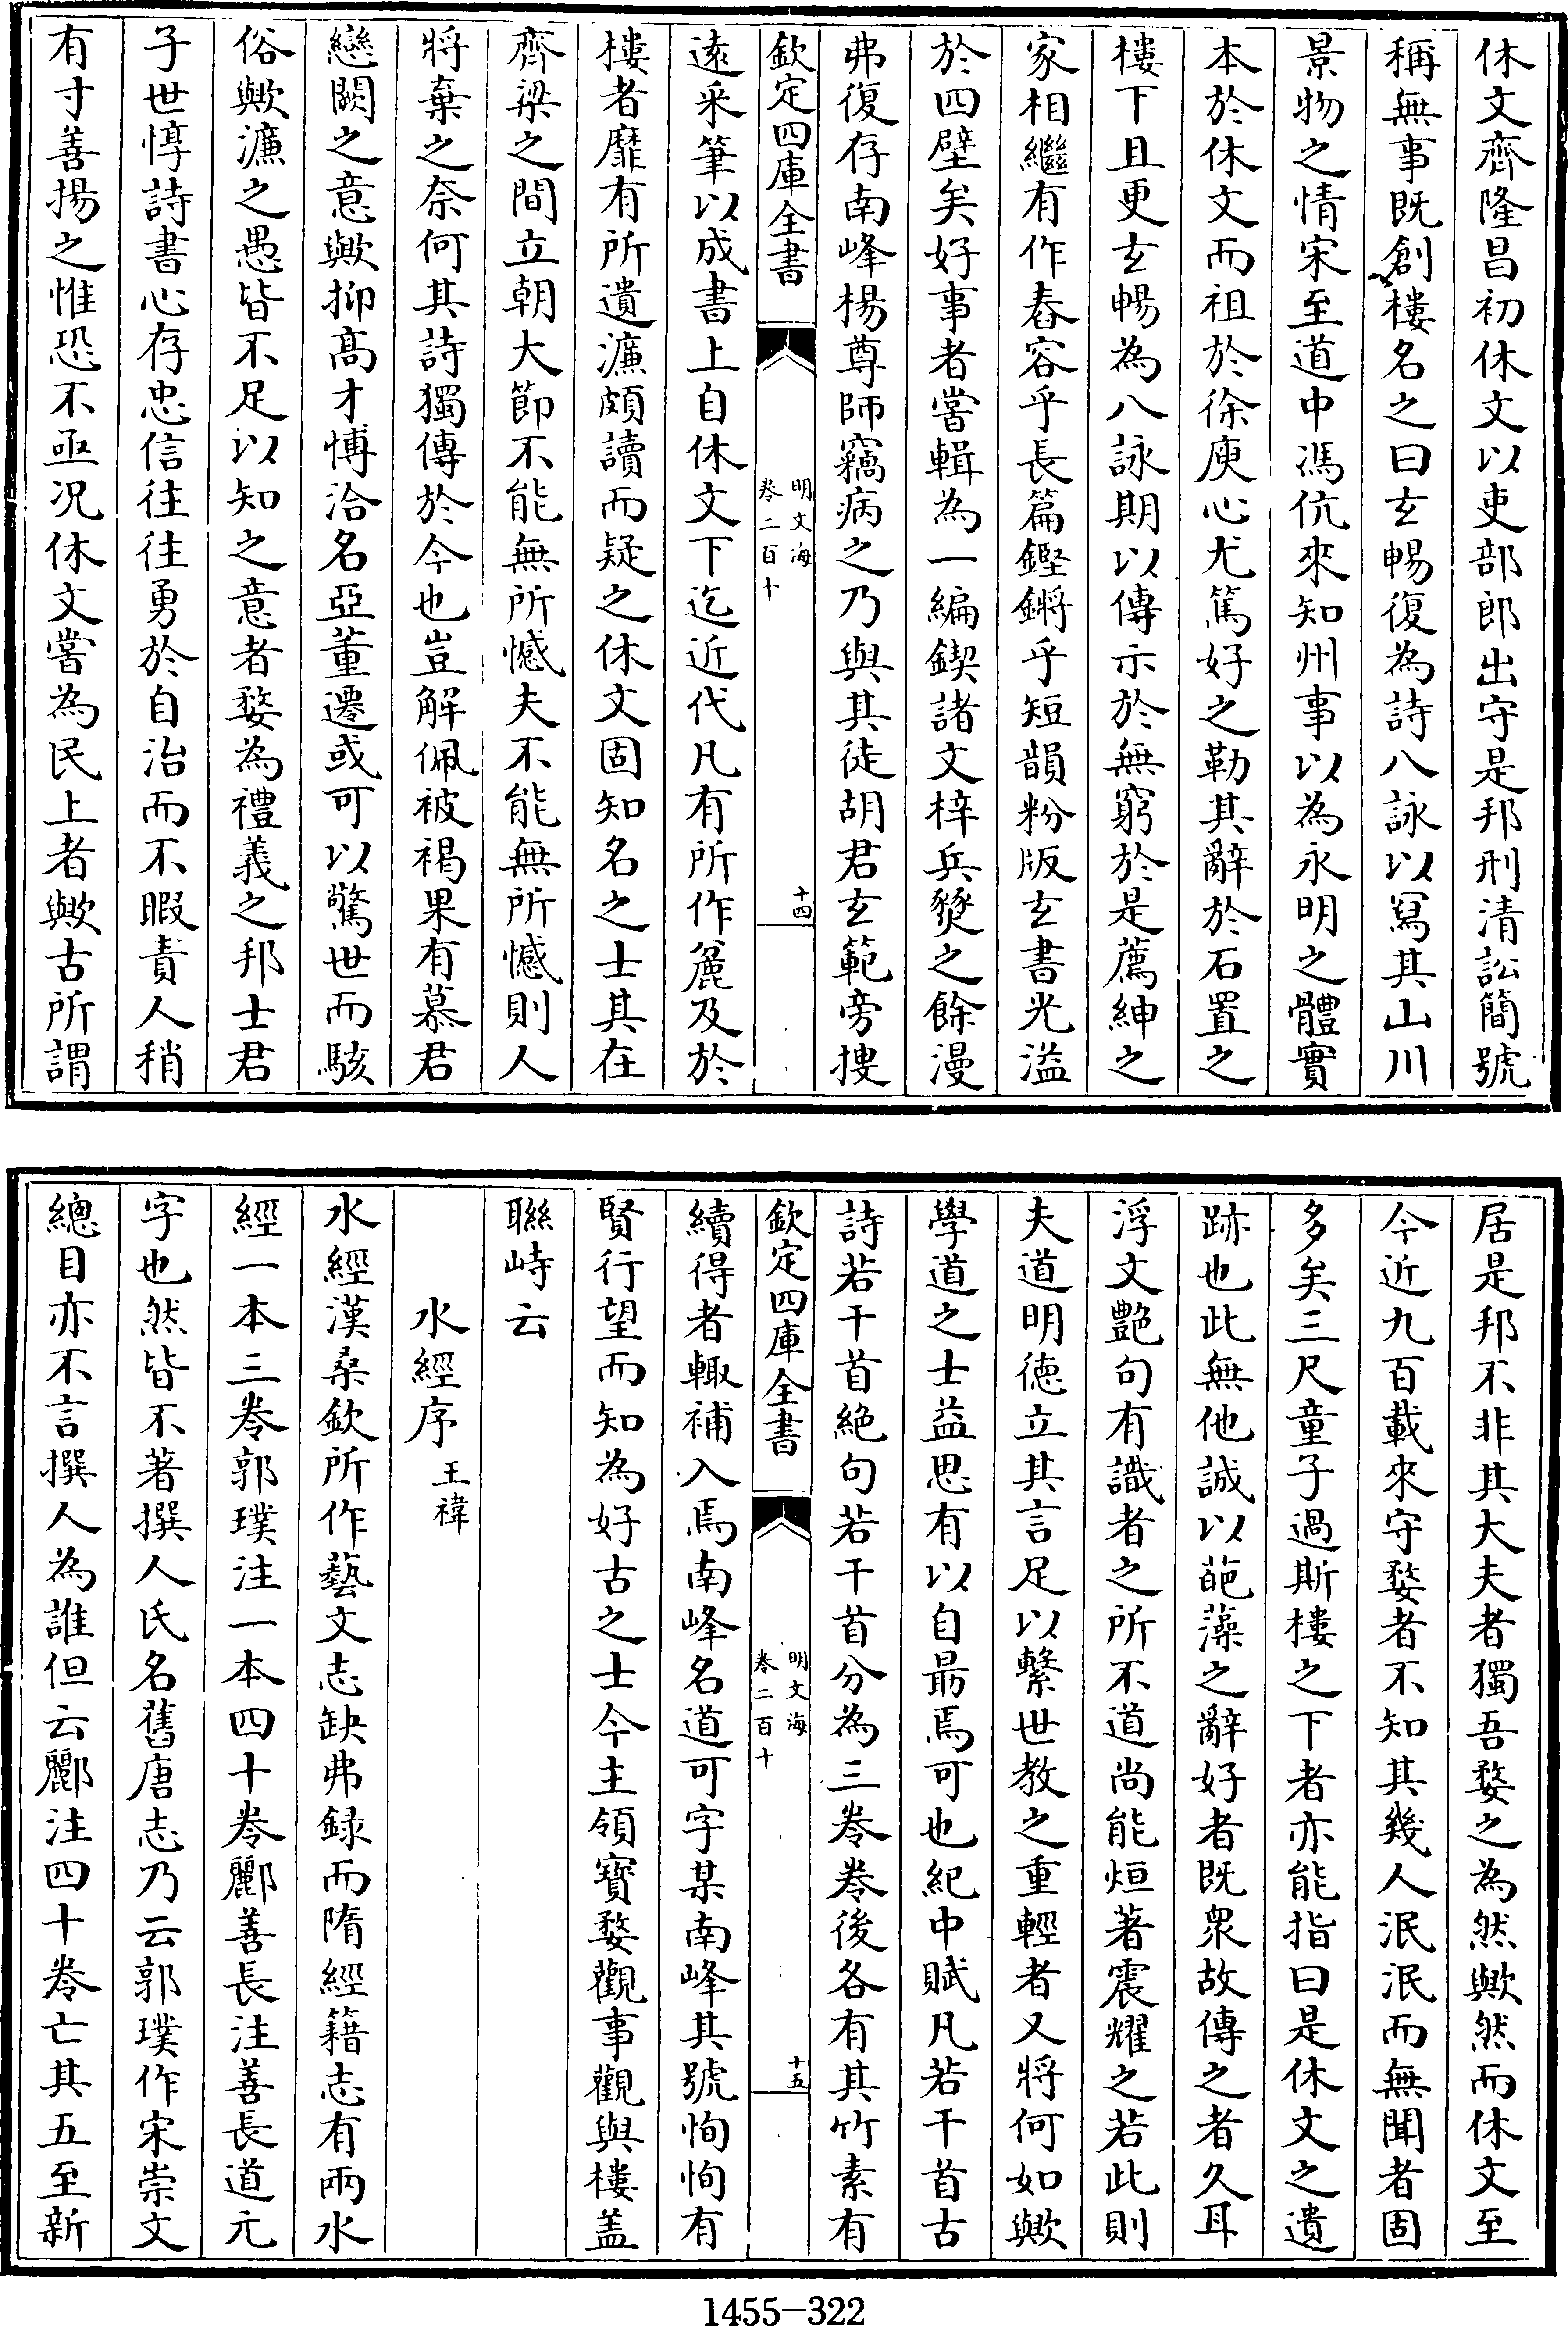 休文齊隆昌初休文以吏部郎出守是邦刑清訟簡號
稱無事既創樓名之曰玄暢復為詩八詠以寫其山川
景物之情宋至道中馮伉來知州事以為永明之體實
本於休文而祖於徐庾心尤篤好之勒其辭於石置之
樓下且更玄暢為八詠期以傳示於無窮於是薦紳之
家相繼有作舂容乎長篇鏗鏘乎短韻粉版玄書光溢
於四壁矣好事者嘗輯為一編鍥諸文梓兵燹之餘漫
弗復存南峰楊尊師竊病之乃與其徒胡君玄範旁搜
欽定四庫全書
明文海
卷二百十
十四
遠采筆以成書上自休文下迄近代凡有所作麄及於
樓者靡有所遺濂頗讀而疑之休文固知名之士其在
齊梁之間立朝大節不能無所憾夫不能無所憾則人
將棄之奈何其詩獨傳於今也豈解佩被褐果有慕君
戀闕之意歟抑髙才博洽名亞董遷或可以驚世而駭
俗歟濂之愚皆不足以知之意者婺為禮義之邦士君
子世惇詩書心存忠信往往勇於自治而不暇責人稍
有寸善揚之惟恐不亟况休文嘗為民上者歟古所謂
居是邦不非其大夫者獨吾婺之為然歟然而休文至
今近九百載來守婺者不知其幾人泯泯而無聞者固
多矣三尺童子過斯樓之下者亦能指曰是休文之遺
跡也此無他誠以葩藻之辭好者既衆故傳之者久耳
浮文艶句有識者之所不道尚能烜著震耀之若此則
夫道明徳立其言足以繫世教之重輕者又將何如歟
學道之士益思有以自勗焉可也紀中賦凡若干首古
詩若干首絶句若干首分為三卷卷後各有其竹素有
欽定四庫全書
明文海
卷二百十
十五
續得者輙補入焉南峰名道可字某南峰其號恂恂有
賢行望而知為好古之士今主領寳婺觀事觀與樓盖
聯峙云
水經序 王褘
水經漢桑欽所作藝文志缺弗録而隋經籍志有兩水
經一本三卷郭璞注一本四十卷酈善長注善長道元
字也然皆不著撰人氏名舊唐志乃云郭璞作宋崇文
總目亦不言撰人為誰但云酈注四十卷亡其五至新
1455-322